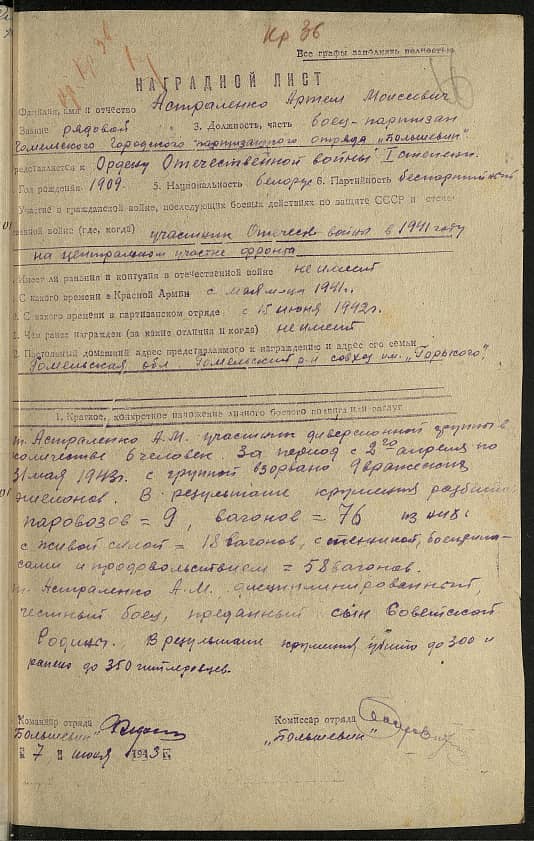 Кр 36
Все графы заполнять полностью
НАГРАДНОЙ ЛИСТ
Фамилия, имя и отчество Астраленко Артем Моисеевич
Звание рядовой 3. Должность, часть боец-партизан
Гомельского Городского партизанского отряда „Большевик"
редставляется к Ордену Отечественной войны I степени.
Год рождения 1909. 5. Национальность белорус 6. Партийность беспартийный
Участие в гражданской войне, последующих боевых действиях по защите СССР и отече
венной войне (где, когда) участник Отечеств война в 1941 году
на центральном участке фронта
Имеет ли ранения и контузии в отечественной войне не имеет
С какого времени в Красной Армии с мая м-ца 1941г.
С какого времени в партизанском отряде с 15 июня 1942г.
1. Чем ранее награжден (за какие отличия и когда) не имеет
2. Постоянный домашний адрес представляемого к награждению и адрес его семьи
Гомельская обл. Гомельский р-н совхоз им. „Горького".
1. Краткое, конкретное изложение личного боевого подвига или заслуг
т. Астраленко А.М. участник диверсионной группы в
количестве 6 человек. За период с 2го апреля по
31 мая 1943г. с группой взорвано 9 вражеских
эшелонов. В результате крушения разбито
паровозов = 9, вагонов = 76 из них:
с живой силой = 18 вагонов, с техникой, боеприпа-
сами и продовольствием = 58 вагонов.
т. Астраленко А.М. дисциплинированный,
честный боец, преданный сын Советской
Родины. В результате крушения убито до 300 и
ранено до 350 гитлеровцев.
Командир отряда
„Большевик"
Комиссар отряда
„Большевик"
„7" июня 1943 г.